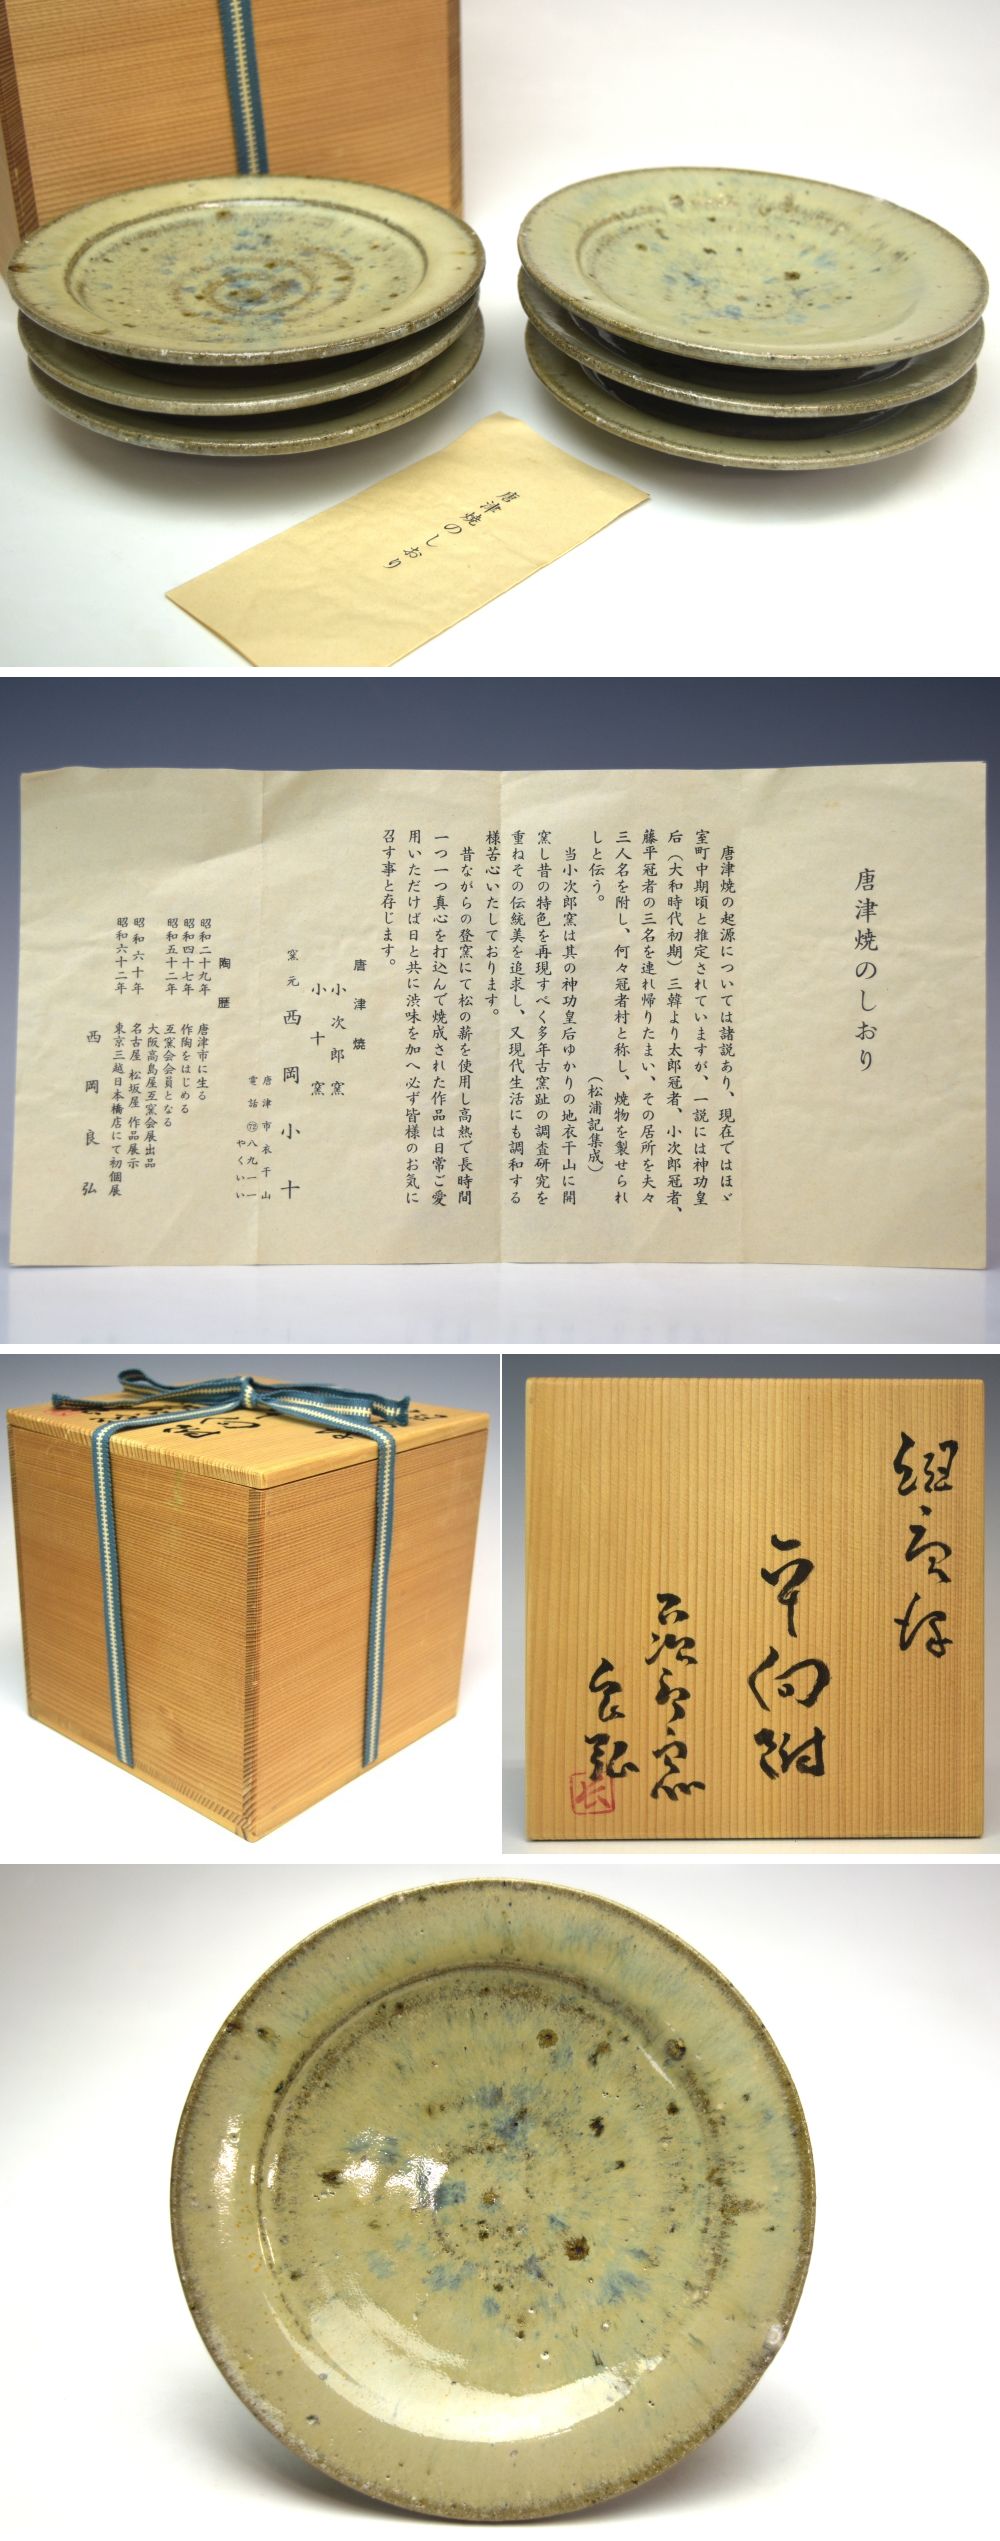 唐津焼のしおり
唐津焼のしおり
唐津焼の起源については諸説あり、現在ではほゞ
室町中期頃と推定されていますが、一説には神功皇
后（大和時代初期）三韓より太郎冠者、小次郎冠者、
藤平冠者の三名を連れ帰りたまい、その居所を夫々
三人名を附し、何々冠者村と称し、焼物を製せられ
しと伝う。
（松浦記集成）
当小次郎窯は其の神功皇后ゆかりの地衣干山に開
窯し昔の特色を再現すべく多年古窯趾の調査研究を
重ねその伝統美を追求し、又現代生活にも調和する
様苦心いたしております。
昔ながらの登窯にて松の薪を使用し高熱で長時間
一つ一つ真心を打込んで焼成された作品は日常ご愛
用いただけば日と共に渋味を加へ必ず皆様のお気に
召す事と存じます。
唐津焼
小次郎窯
小十窯
窯元 西岡小十
唐津市衣干山
電話㉒八九一一
やくいい
陶歴
昭和二十九年 唐津市に生る
昭和四十七年 作陶をはじめる
互窯会会員となる
昭和五十二年 大阪高島屋互窯会展出品
昭和六十年 名古屋 松坂屋 作品展示
昭和六十二年 東京三越日本橋店にて初個展
西岡良弘
絵唐津
平向附
小次郎窯
良弘